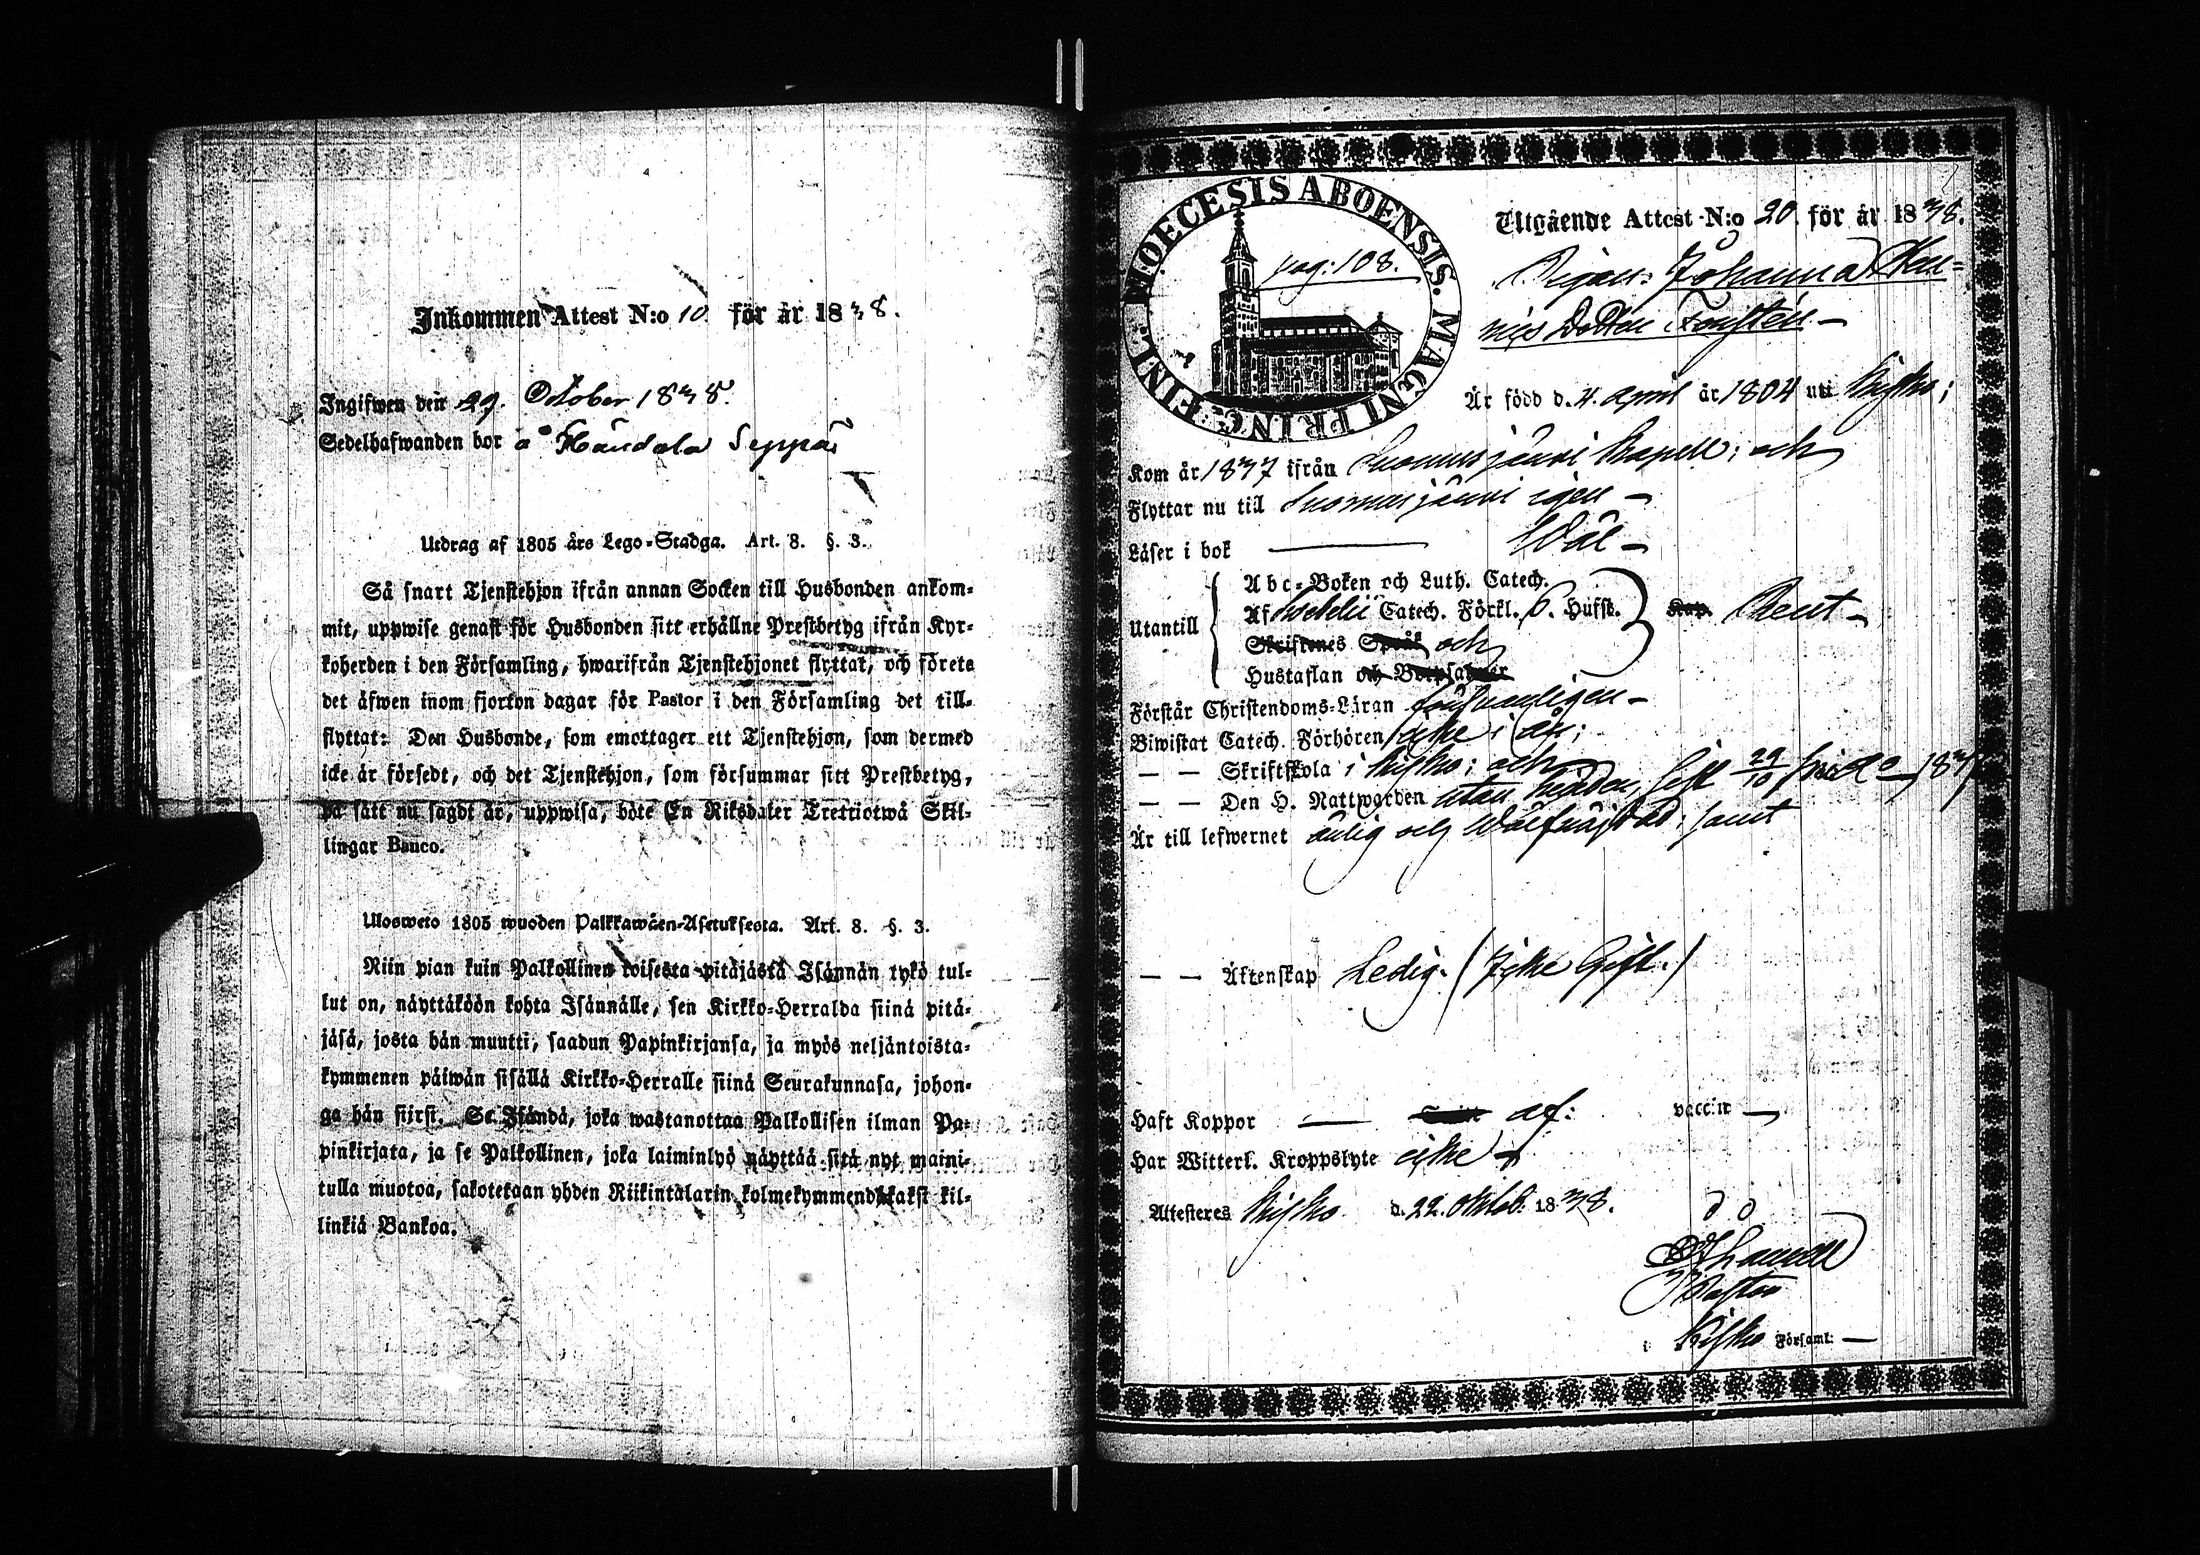 Inkommen Attest N:o 10. för år 1838.
Ingifwen den 29. October 1838.
Sedelhafwanden bor å Händälä Seppäs
Utdrag af 1805 års Lego-Stadga. Art. 8. §. 3.
Så snart Tjenstehjon ifrån annan Socken till Husbonden ankom-
mit, uppwise genast för Husbonden sitt erhållne Prestbetyg ifrån Kyr-
koherden i den Församling, hwarifrån Tjenstehjonet flyttat, och förete
det äfwen inom fjorton dagar för Pastor i den Församling det till-
flyttat: Den Husbonde, som emottager ett Tjenstehjon, som dermed
icke är försedt, och det Tjenstehjon, som försummar sitt Prestbetyg,
på sätt nu sagdt är, uppwisa, böte En Riksdaler Trettiotwå Skil-
lingar Banco.
Ulosweto 1805 wuoden Palkkawäen-Asetuksesta. Art. 8. §. 3.
Niin pian kuin Palkollinen toisesta pitäjästä Isännän tykö tul-
lut on, näyttäköön kohta Isännälle, sen Kirkko-Herralda siinä pitä-
jäsä, josta hän muutti, saadun Papinkirjansa, ja myös neljäntoista-
kymmenen päiwän sisällä Kirkko-Herralle siinä Seurakunnasa, johon-
ga hän siirst. Se Isändä, joka wastanottaa Palkollisen ilman Pa-
pinkirjata, ja se Palkollinen, joka laiminlyö näyttää sitä nyt maini-
tulla muotoa, sakotetaan yhden Riikintalarin kolmekymmendäkaksi kil-
linkiä Bankoa.
DIOECESIS ABOENSIS. MAGNI PRINC. FINL.
pag: 108.
Utgående Attest N:o 20. för år 1838.
Pigan: Johanna Hen-
rics Dotter Forstén.
Är född d. 4. April år 1804 uti Kisko;
Kom år 1837 ifrån Suomusjärvi Kapell; och
Flyttar nu till Suomusjärvi igen
Läser i bok Wäl
Abc-Boken och Luth. Catech.
Utantill Af Swebelii Catech. Förkl. 6. Hufst. Kap. Rent
Skriftenes Språk och
Hustaflan och Botpsalmer
Förstår Christendoms-Läran försvarligen
Biwistat Catech. Förhören icke i år;
— — Skriftskola i Kisko; och
— — Den H. Nattwarden utan hinder, sist 29/10 sistl. 1837
Är till lefwernet ärlig och wälfräjdad; samt
— — Äktenskap Ledig. (Icke Gift.)
Haft Koppor af: vaccin
Har Witterl. Kroppslyte icke
Attesteres Kisko d. 22. Oktob. 1838.
Pastor
i Kisko Församl: